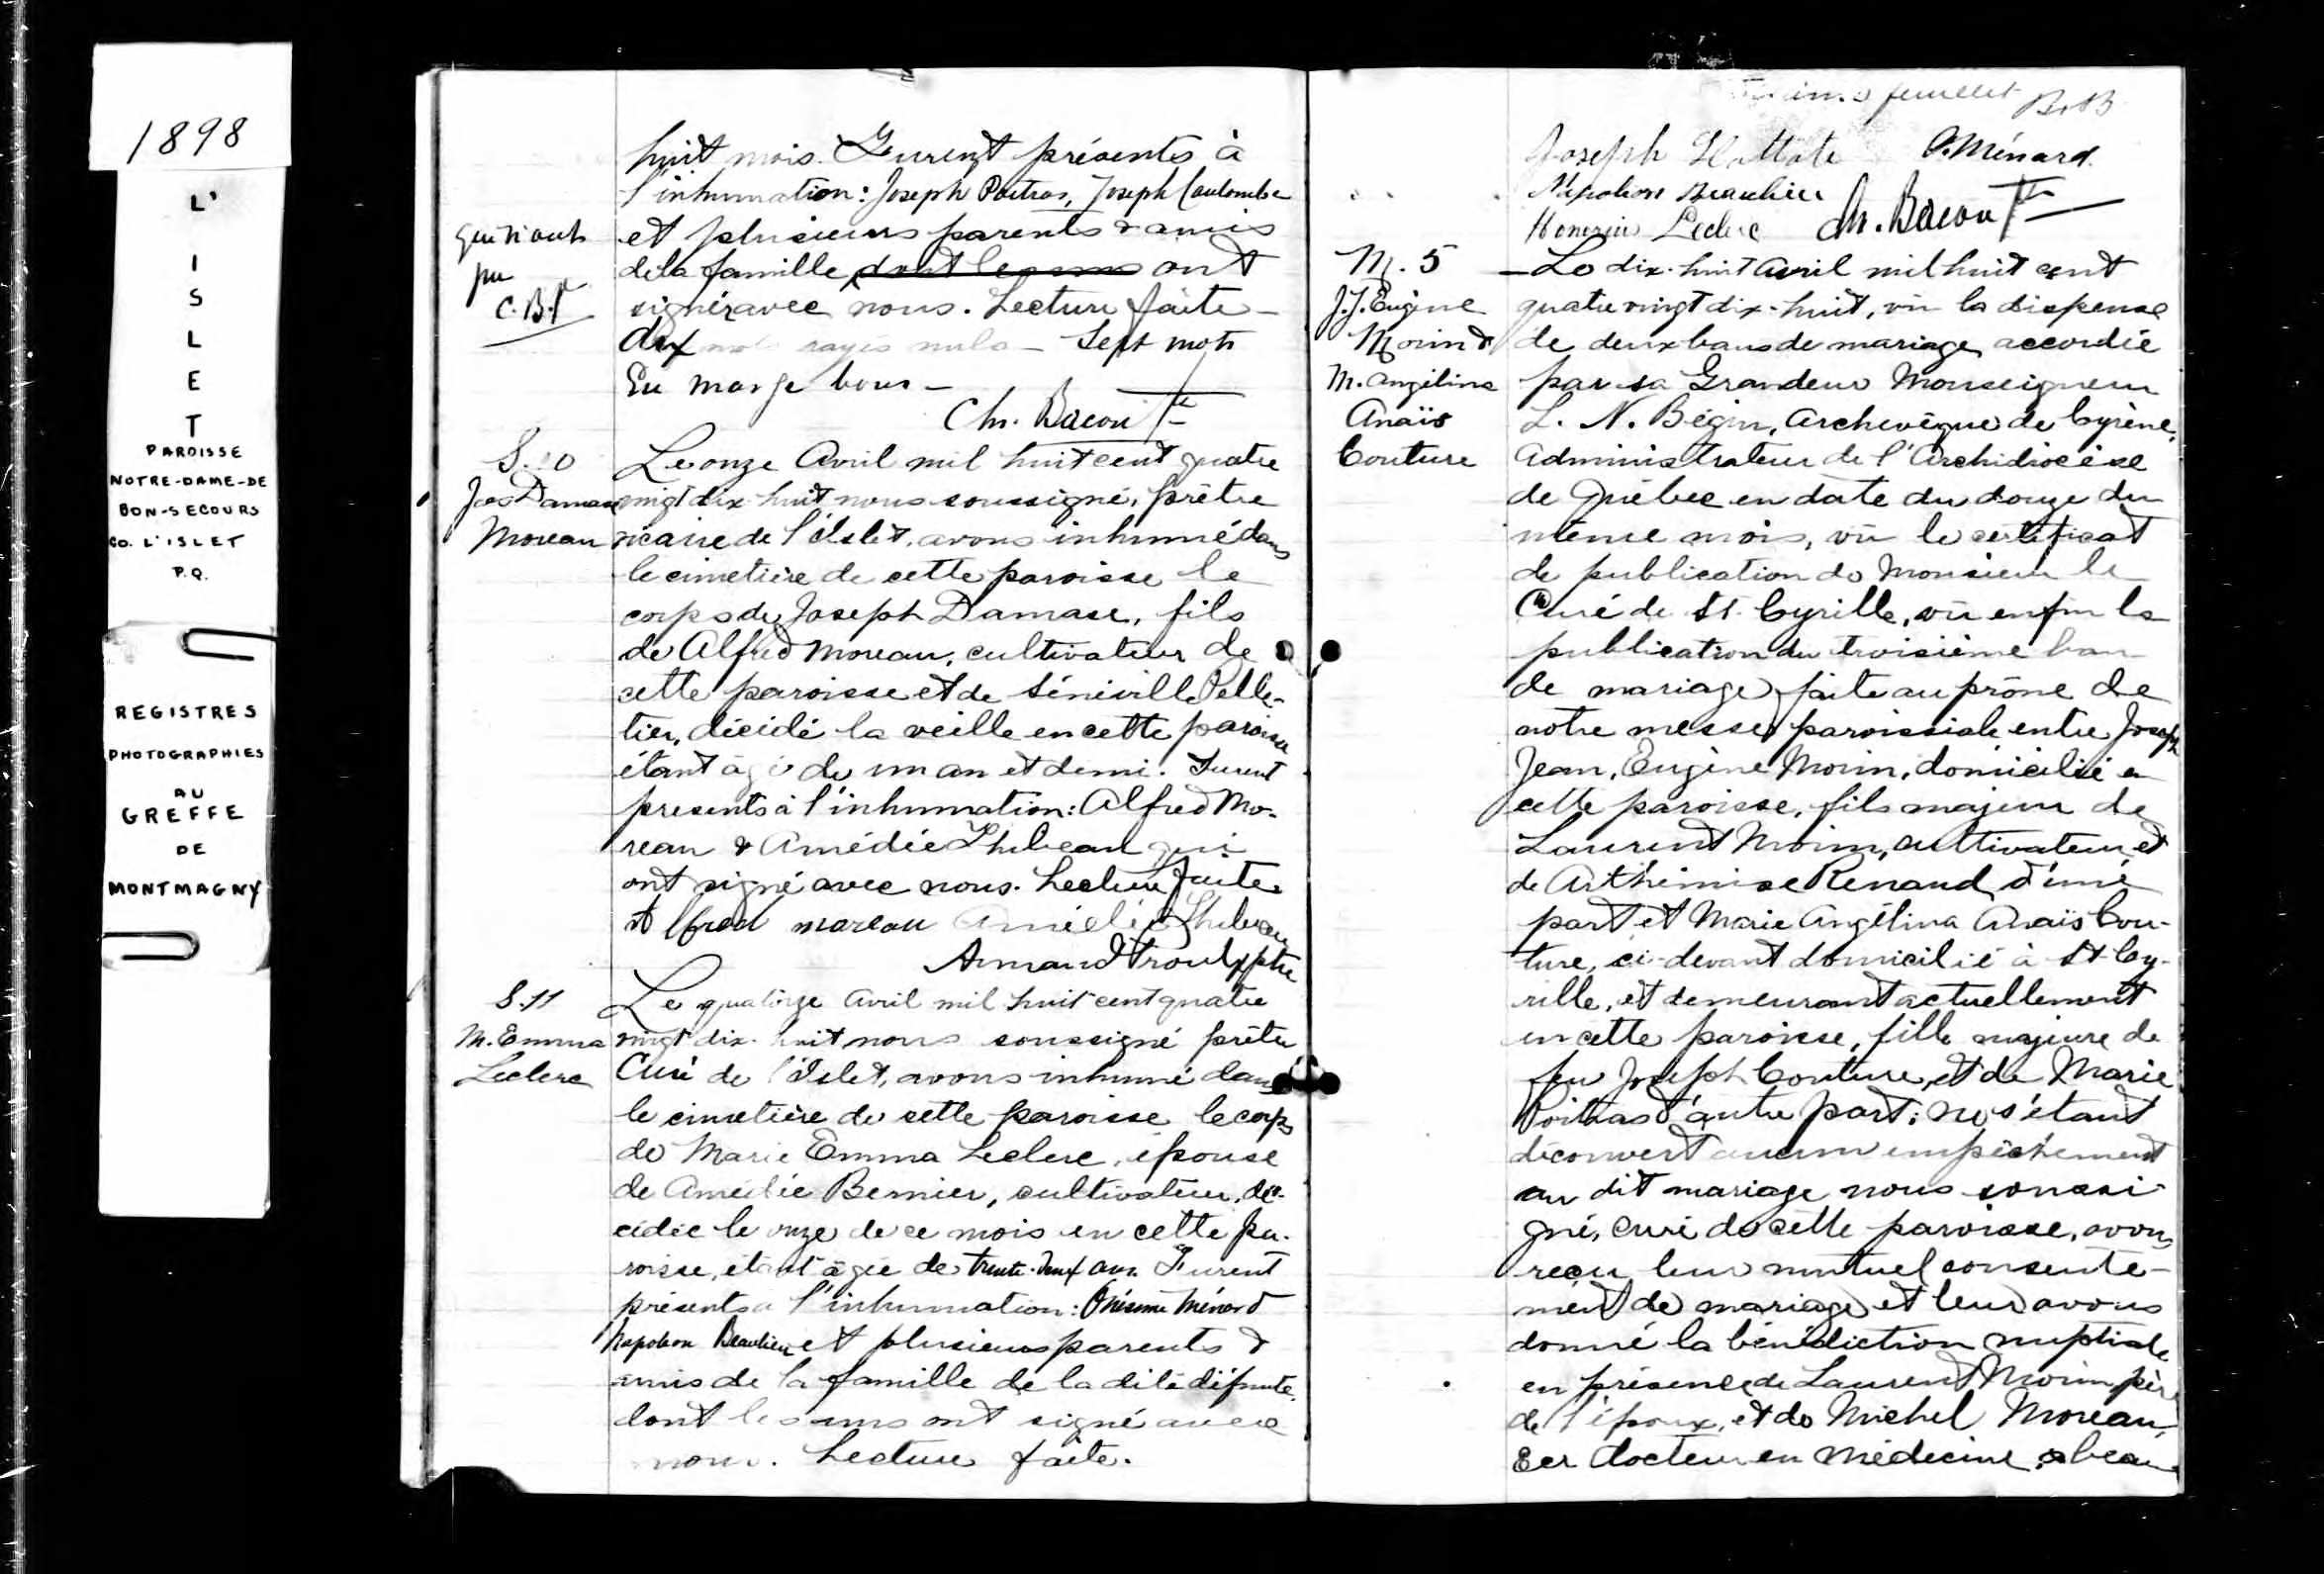 1898
L'
I
S
L
E
T
PAROISSE
NOTRE-DAME-DE
BON-SECOURS
CO. L'ISLET
P.Q.
REGISTRES
PHOTOGRAPHIES
AU
GREFFE
DE
MONTMAGNY
huit mois. Furent présents à
l'inhumation: Joseph Poitras, Joseph Coulombe
et plusieurs parents & amis
de la famille dont les uns ont
signé avec nous. Lecture faite_
Dix mots rayés nuls_ Sept mots
En marge bons_
Ch. Bacon Ptre
qui n'ont
pu
C.B.P
S. 10
Jos Damase
Moreau
Le onze Avril mil huit cent quatre
vingt dix-huit nous soussigné, prêtre
vicaire de l'Islet, avons inhumé dans
le cimetière de cette paroisse le
corps de Joseph Damase, fils
de Alfred Moreau, cultivateur de
cette paroisse et de Pelle-
tier, décédé la veille en cette paroisse
étant âgé de un an et demi. Furent
presents à l'inhumation: Alfred Mo-
reau & Amédée Thibeau qui
ont signé avec nous. Lecture faite
Alfred moreau Amédée
Armand Proulx ptre
S. 11
M. Emma
Leclerc
Le quatorze Avril mil huit cent quatre
vingt dix-huit nous soussigné prêtre
Curé de l'Islet, avons inhumé dans
le cimetière de cette paroisse le corps
de Marie Emma Leclerc, épouse
de Amédée Bernier, cultivateur, dé-
cédée le onze de ce mois en cette pa-
roisse, étant âgée de trente-deux ans. Furent
présents à l'inhumation: Onésime Ménard
Napoléon Beaulieu et plusieurs parents &
amis de la famille de la dite défunte
dont les uns ont signé avec
nous. Lecture faite.
feuillet
Joseph O. Ménard.
Napoléon Beaulieu
Honorius Leclerc Ch. Bacon Ptre
M. 5
J.J. Eugène
Morin &
M. Angélina
Anaïs
Couture
_Le dix-huit Avril mil huit cent
quatre vingt dix-huit, vû la dispense
de deux bans de mariage accordée
par sa Grandeur Monseigneur
L. N. Bégin, Archevêque de Cyrène,
Administrateur de l'Archidiocèse
de Québec en date du douze du
même mois, vû le certificat
de publication de Monsieur le
Curé de St. Cyrille, vû enfin la
publication du troisième ban
de mariage faite au prône de
notre messe paroissiale entre Joseph
Jean, Eugène Morin, domicilié en
cette paroisse, fils majeur de
Laurent Morin, cultivateur et
de Arthémise Renaud d'une
part et Marie Angélina Anaïs Cou-
ture, ci-devant domicilié à St Cy-
rille, et demeurant actuellement
en cette paroisse, fille majeure de
feu Joseph Couture, et de Marie
Poitras d'autre part; ne s'étant
découvert aucun empêchement
au dit mariage nous soussi-
gné, curé de cette paroisse, avons
reçu leur mutuel consente-
ment de mariage et leur avons
donné la bénédiction nuptiale
en présence de Laurent Morin père
de l'époux, et de Michel Moreau,
Ecr docteur en Médecine, beau